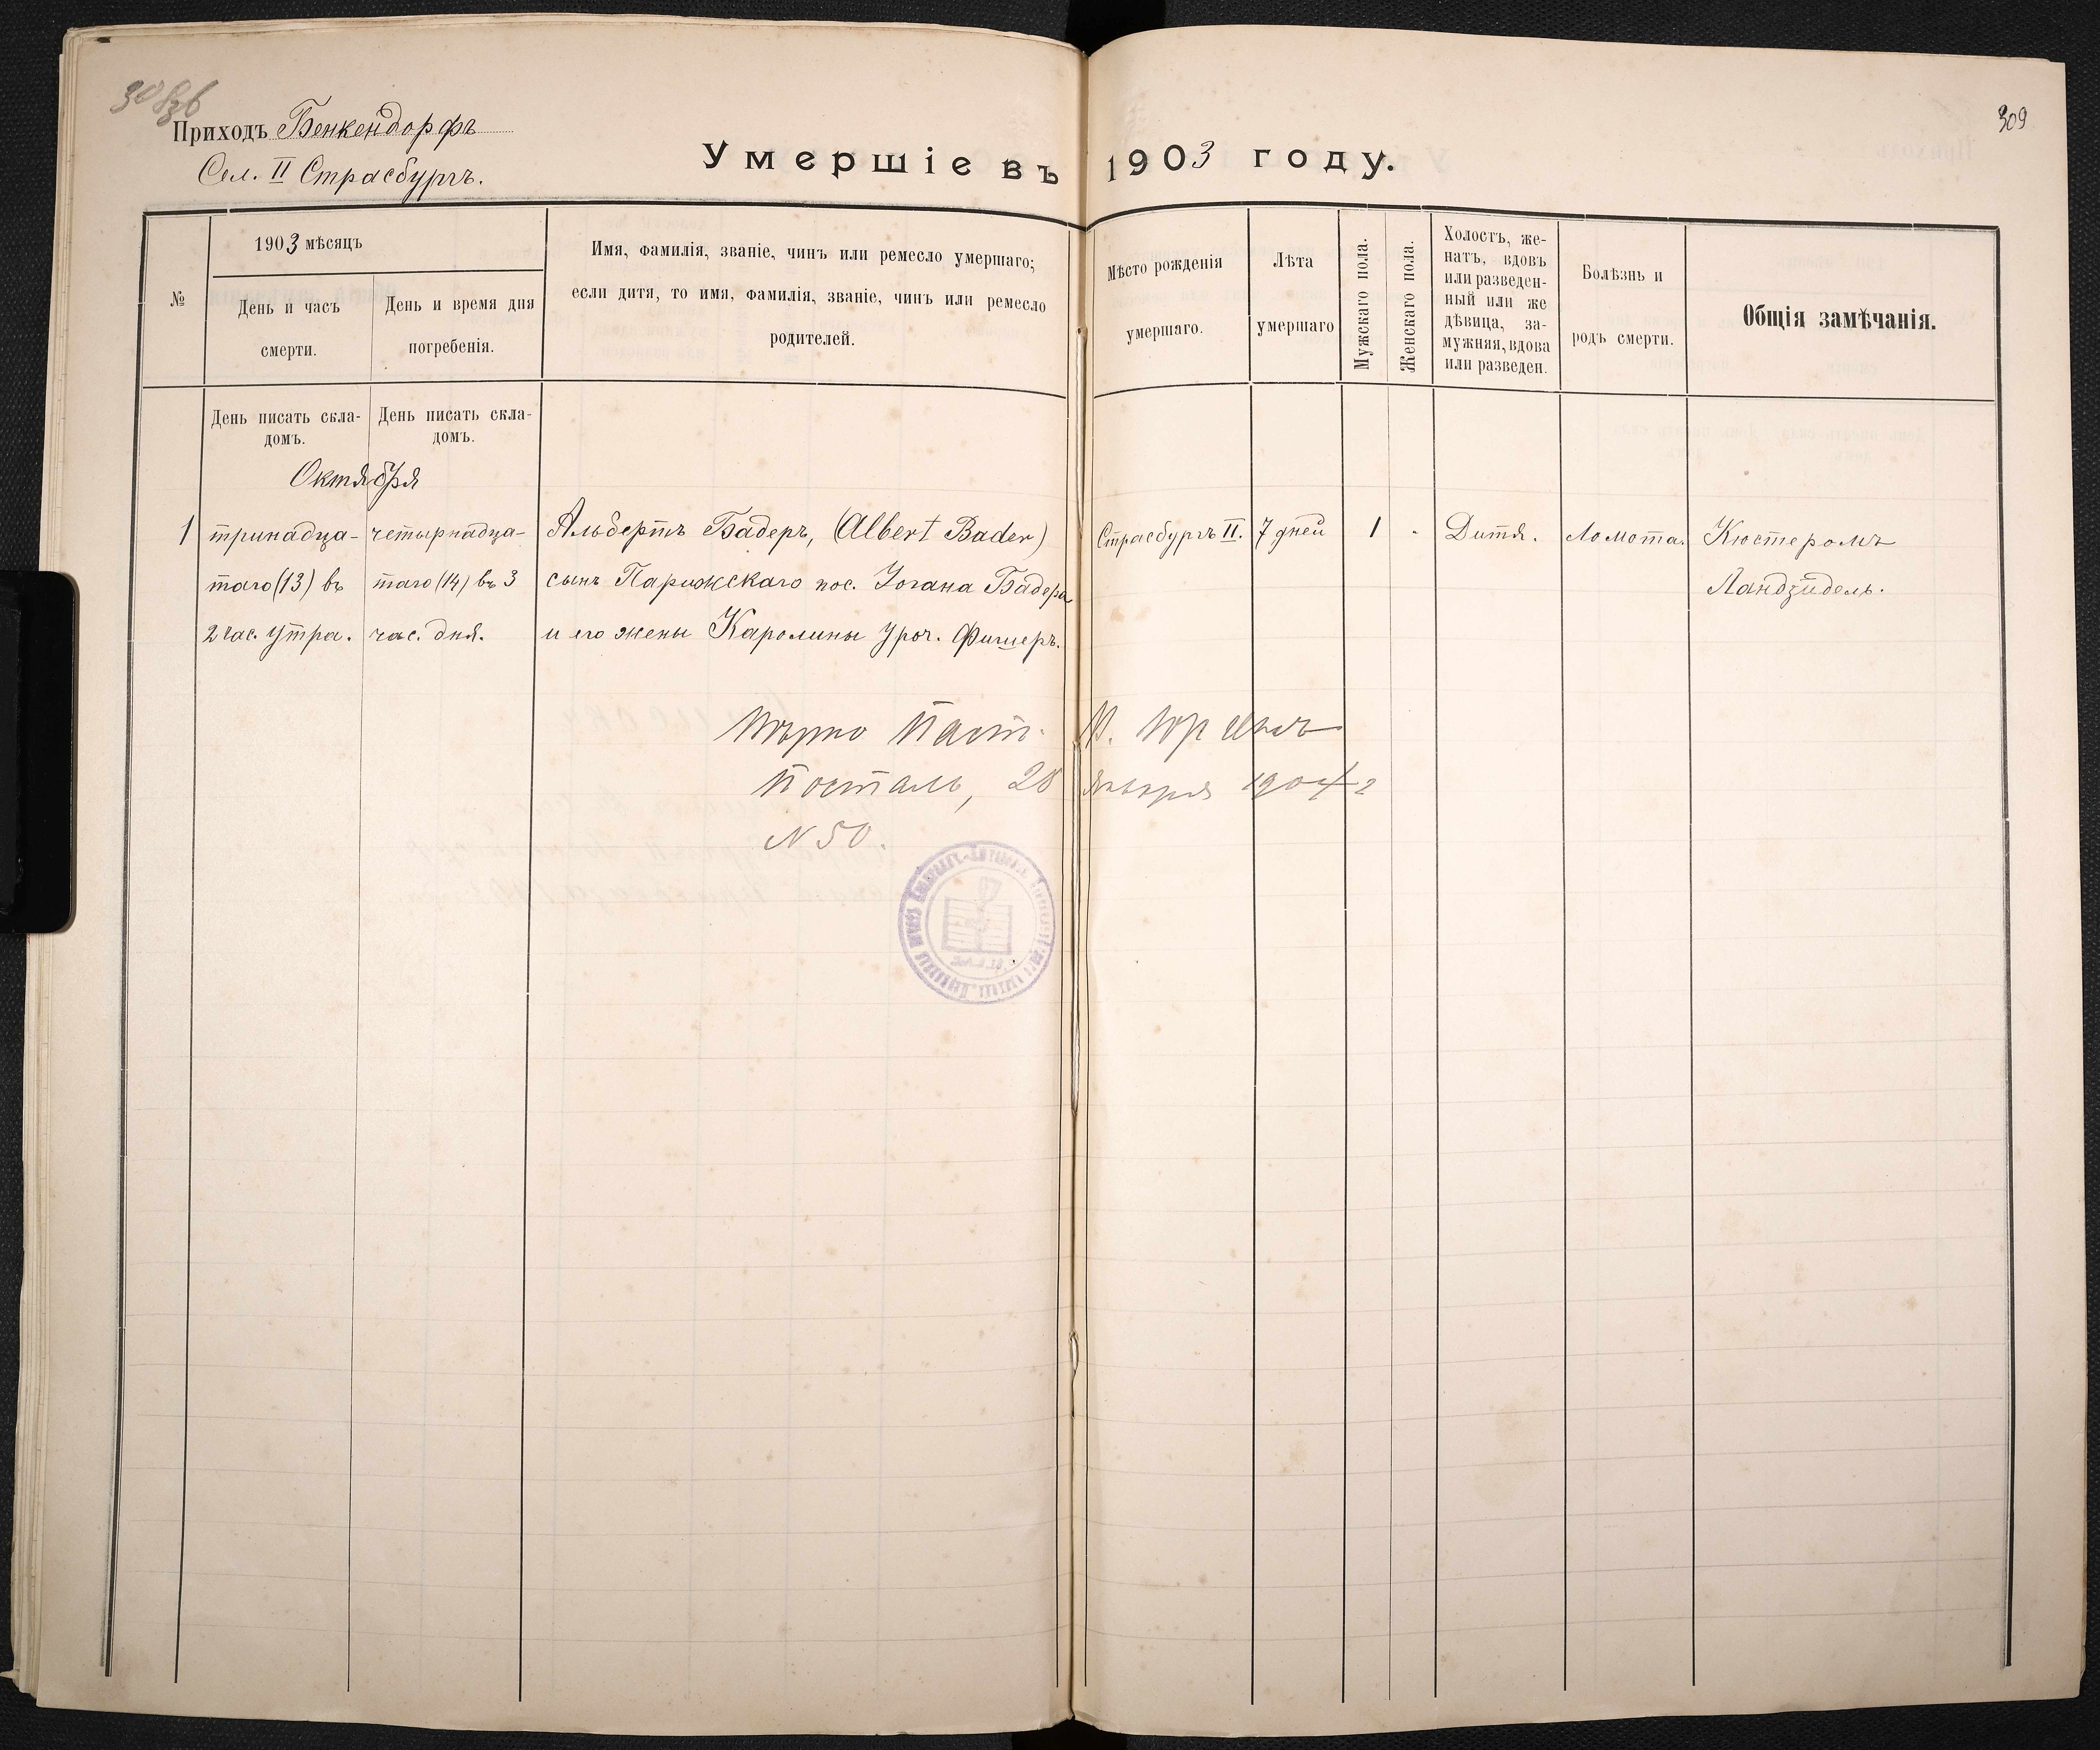 Приходъ Бенкендорфъ
Сел. II Страсбургъ.
309
Умершіе въ 1903 году.
№
1903 мѣсяцъ
День и часъ
смерти.
День и время дня
погребенія.
Имя, фамилія, званіе, чинъ или ремесло умершаго;
если дитя, то имя, фамилія, званіе, чинъ или ремесло
родителей.
Мѣсто рожденія
умершаго.
Лѣта
умершаго
Мужскаго пола.
Женскаго пола.
Холостъ, же-
натъ, вдовъ
или разведен-
ный или же
дѣвица, за-
мужняя, вдова
или разведен.
Болѣзнь и
родъ смерти.
Общія замѣчанія.
День писать скла-
домъ.
День писать скла-
домъ.
Октября
1 тринадца- четырнадца- Альбертъ Бадеръ, (Albert Bader) Страсбургъ II. 7 дней 1 - Дитя. Ломота. Кюстеромъ
таго (13) въ таго (14) въ 3 сынъ Парижскаго пос. Іогана Бадера Ландзидель.
2 час. утра. час. дня. и его жены Каролины уроч. Фишеръ.
Вѣрно Паст.
Посталь, 28 января 1904 г
N 50.